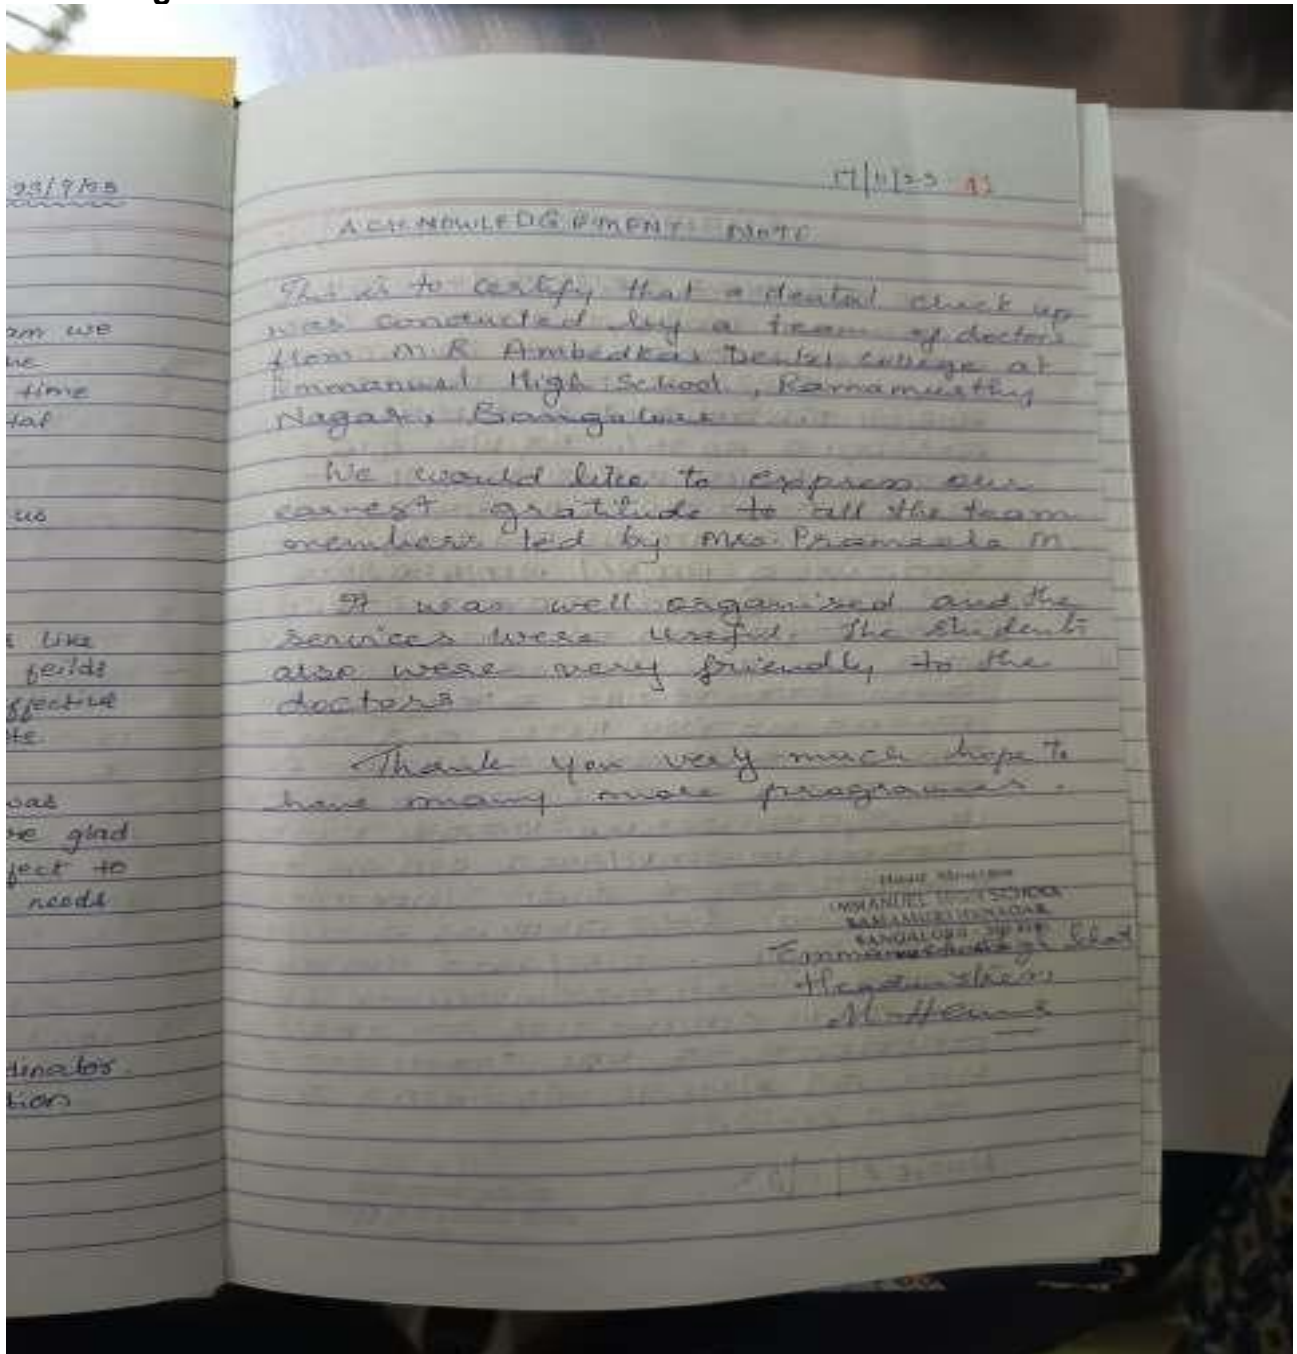 23/9/23
am we
time
tal
us
like
feilds
ffective
was
re glad
ject to
needs
dinator.
tion
17/11/23
ACKNOWLEDGEMENT NOTE
This is to certify that a dental check up
was conducted by a team of doctors
from M.R Ambedkar Dental college at
Immanuel High School, Ramamurthy
Nagar, Bangalore
We would like to express our
earnest gratitude to all the team
members led by Mrs Prameela M.
It was well organised and the
services were useful. The students
also were very friendly to the
doctors
Thank you very much hope to
have many more programmes.
IMMANUEL HIGH SCHOOL
RAMAMURTHYNAGAR
BANGALORE